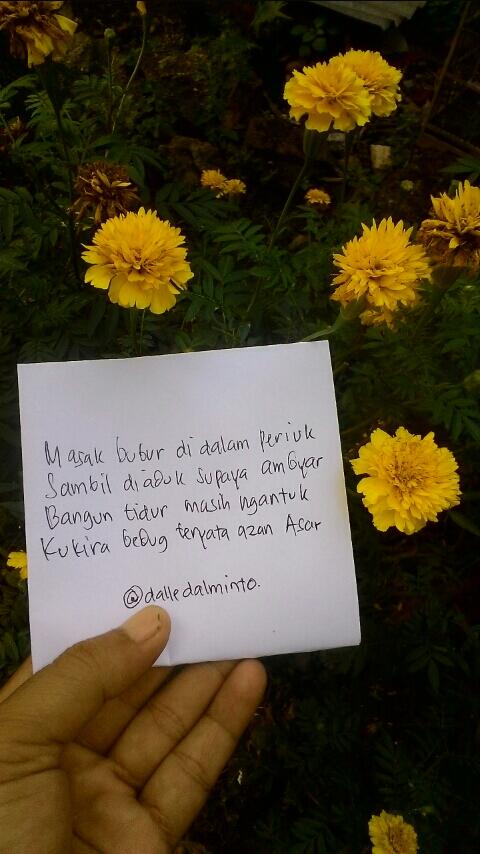 Masak bubur di dalam periuk
Sambil diaduk supaya ambyar
Bangun tidur masih ngantuk
Kukira bedug ternyata azan Asar
@dalledalminto.